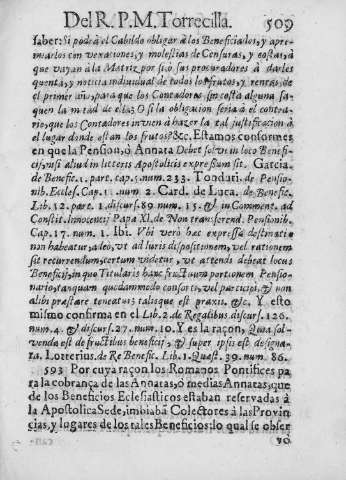 Del R. P. M. Torrecilla. 509
saber: Si podrà el Cabildo obligar à los Beneficiados, y apre-
miarlos con vexaciones, y molestias de Censuras, y costas, à
que vayan à la Matriz por sì, ò sus procuradores à darles
quenta, y noticia individual de todos los frutos, y rentas, de
el primer año, para que los Contadores, sin costa alguna sa-
quen la mitad de ellas? O si la obligacion seria à el contra-
rio, que los Contadores invien à hazer la tal justificacion à
el lugar donde estàn los frutos? &c. Estamos conformes
en que la Pension, ò Annata Debet solvi in loco Benefi-
cij, nisi aliud in litteris Apostolicis expressum sit. Garcia.
de Benefic. 1. part. cap. 5. num. 233. Tonduti. de Pensio-
nib. Eccles. Cap. 11. num. 2. Card. de Luca. de Benefic.
Lib. 12. part. 1. discurs. 89 num. 15. & in Comment. ad
Constit. Innocentij Papæ XI. de Non transferend. Pensionib.
Cap. 17. num. 1. Ibi. Vbi verò hac expressa destinatio
non habeatur, adeo, vt ad Iuris dispositionem, vel rationem
sit recurrendum, certum videtur, vt attendi debeat locus
Beneficij, in quo Titularis hanc fructuum portionem Pensio-
nario, tanquam quodammodo consorti, vel participi, & non
alibi præstare teneatur; talisque est praxis. &c. Y esto
mismo confirma en el Lib. 2. de Regalibus discurs. 126.
num. 4. & discurs. 27. num. 10. Y es la raçon, Quia sol-
venda est de fructibus beneficij, & super ipsis est designa-
ta. Lotterius. de Re Benefic. Lib. 1. Quæst. 39. num. 86.
593 Por cuya raçon los Romanos Pontifices pa
ra la cobrança de las Annatas, ò medias Annatas, que
de los Beneficios Eclesiasticos estaban reservadas à
la Apostolica Sede, imbiabã Colectores à las Provin
cias, y lugares de los tales Beneficios: lo qual se obser
vo